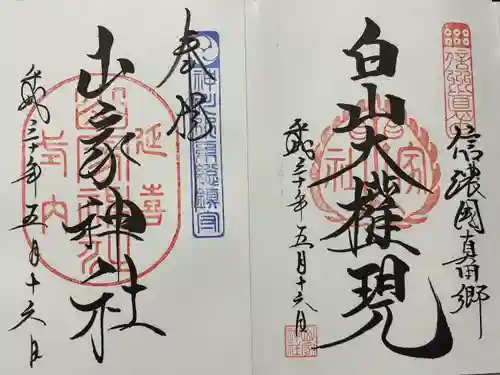 信濃國真田郷
白山大權現
平成三十年五月十六日
奉拝
山家神社
平成三十年五月十六日
延喜
式内